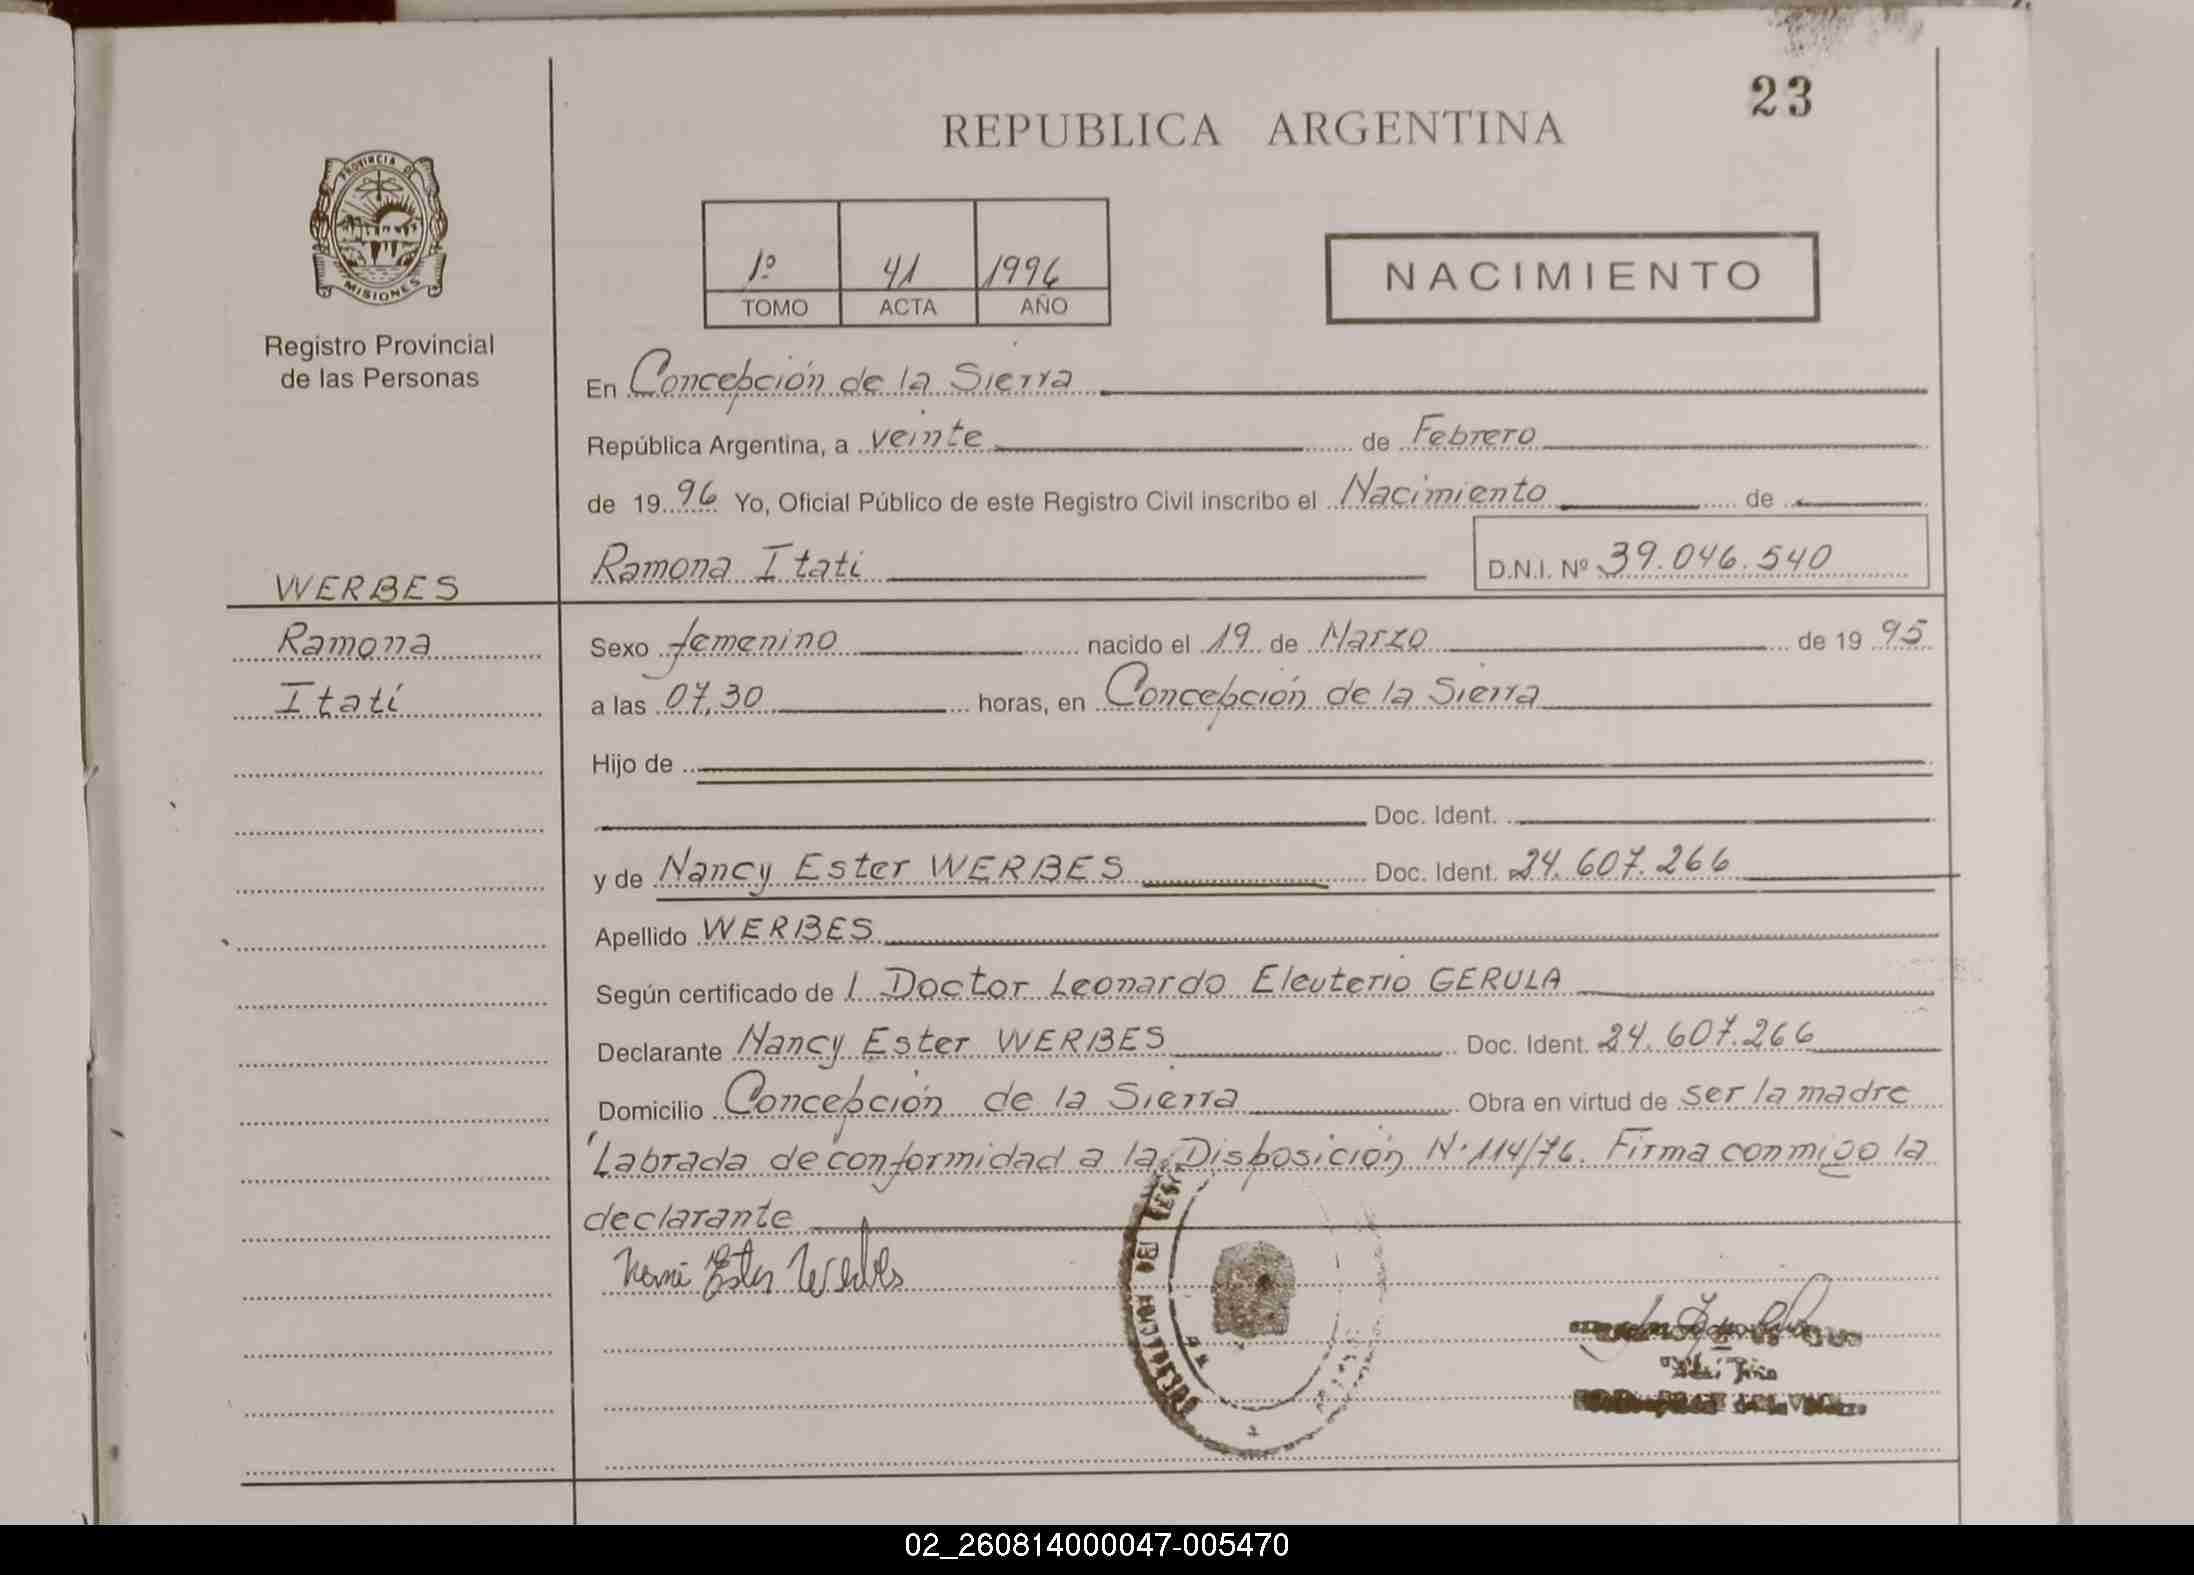 23
REPUBLICA ARGENTINA
PROVINCIA DE
MISIONES
Registro Provincial
de las Personas
1º 41 1996
TOMO ACTA AÑO
NACIMIENTO
En Concepción de la Sierra
República Argentina, a veinte de Febrero
de 19 96 Yo, Oficial Público de este Registro Civil inscribo el Nacimiento de
Ramona Itati D.N.I. Nº 39.046.540
WERBES
Ramona
Itatí
Sexo femenino nacido el 19 de Marzo de 19 95
a las 07,30 horas, en Concepción de la Sierra
Hijo de
Doc. Ident.
y de Nancy Ester WERBES Doc. Ident. 24.607.266
Apellido WERBES
Según certificado de l Doctor Leonardo Eleuterio GERULA
Declarante Nancy Ester WERBES Doc. Ident. 24.607.266
Domicilio Concepción de la Sierra Obra en virtud de ser la madre
Labrada de conformidad a la Disposición N·114/76. Firma conmigo la
declarante
Ester Werbes
02_260814000047-005470